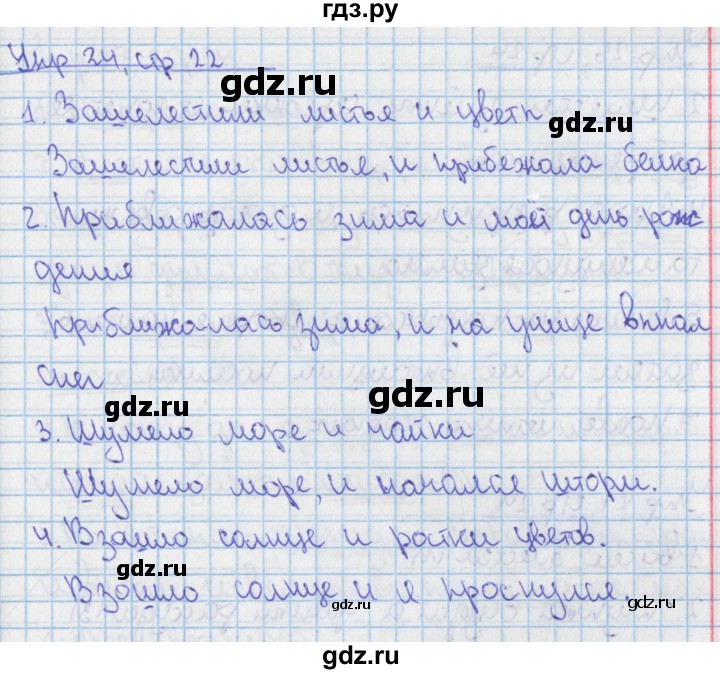 гдз.ру
Упр 34, стр 22
gdz.ru
1. Зашелестили листья и цветы
gdz.ru
Зашелестили листья, и прибежала белка
2. Приближалась зима и мой день рож
дения
Приближалась зима, и на улице выпал
снег
gdz.ru
gdz.ru
3. Шумело море и чайки
Шумело море, и начался шторм.
4. Взашло солнце и ростки цветов.
gdz.ru
Взошло солнце и я проснулся.
gdz.ru
gdz.ru
gdz.ru